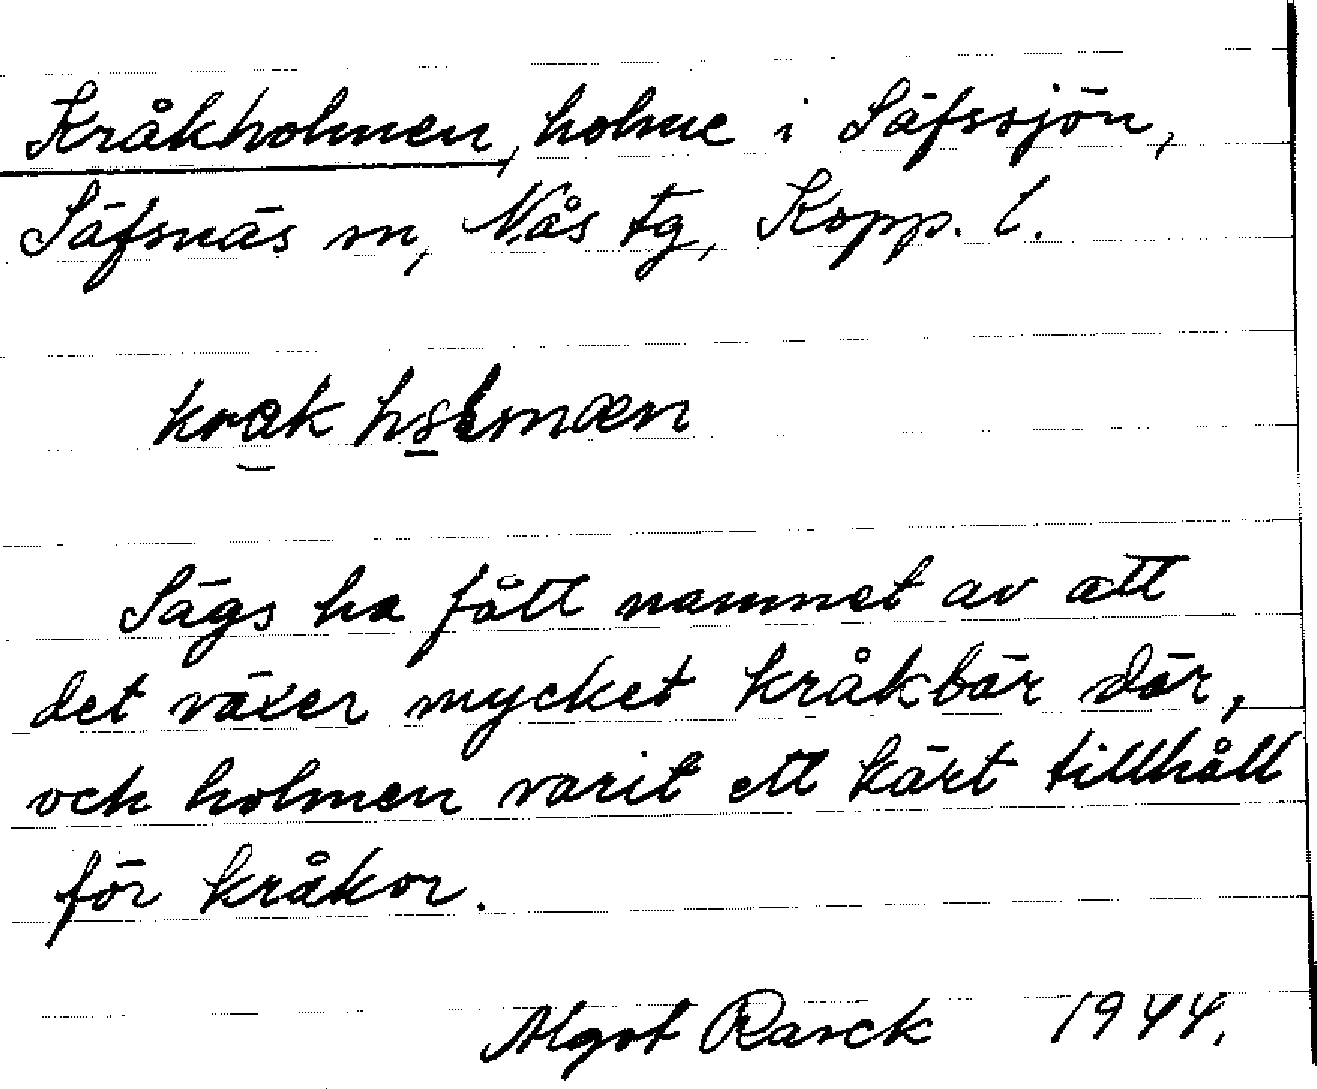 Kråkholmen, holme i Säfssjön,
Säfsnäs sn, Nås tg, Kopp. l.
Sägs ha fått namnet av att
det växer mycket kråkbär där,
och holmen varit ett kärt tillhåll
för kråkor.
Algot Rarck 1944.